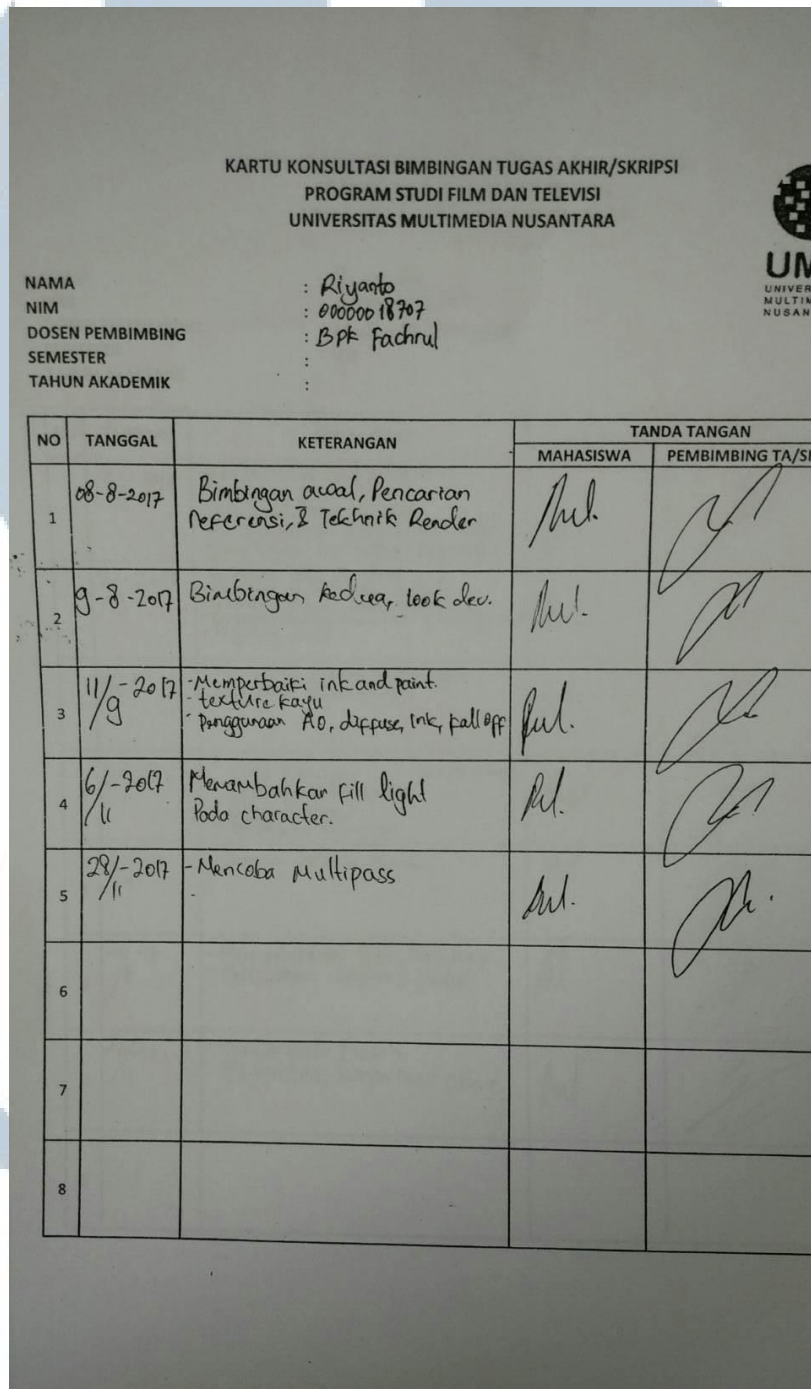 KARTU KONSULTASI BIMBINGAN TUGAS AKHIR/SKRIPSI
PROGRAM STUDI FILM DAN TELEVISI
UNIVERSITAS MULTIMEDIA NUSANTARA
UM
UNIVER
MULTIM
NUSAN
NAMA : Riyanto
NIM : 00000018707
DOSEN PEMBIMBING : BPK Fachrul
SEMESTER :
TAHUN AKADEMIK :
NO TANGGAL KETERANGAN TANDA TANGAN
MAHASISWA PEMBIMBING TA/S
1 08-8-2017 Bimbingan awal, Pencarian
Referensi, & Tekhnik Render
2 9-8-2017 Bimbingan kedua, look dev.
3 11/9-2017 -Memperbaiki ink and paint.
- texture kayu
- Penggunaan AO, diffuse, Ink, fall off
4 6/11-2017 Menambahkan fill light
Pada character.
5 28/11-2017 -Mencoba Multipass
-
6
7
8